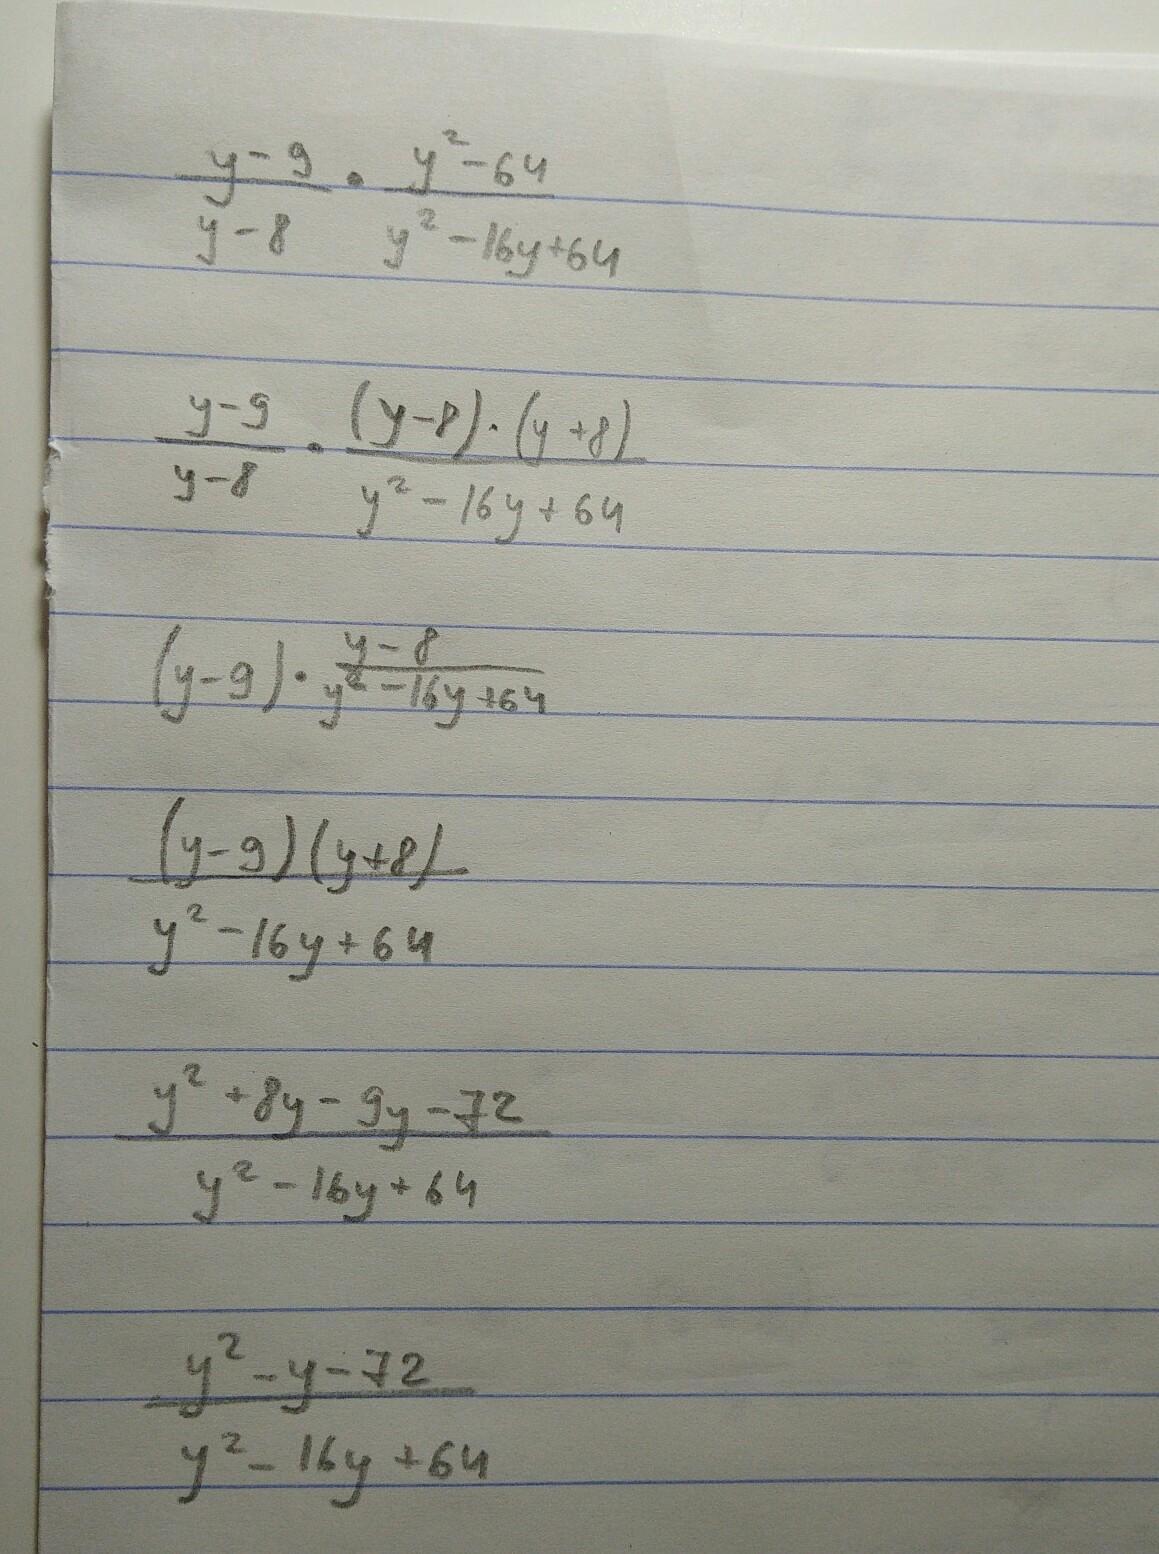 y-9/y-8 · y²-64/y²-16y+64
y-9/y-8 · (y-8)·(y+8)/y²-16y+64
(y-9)· y-8/y²-16y+64
(y-9)(y+8)/y²-16y+64
y²+8y-9y-72/y²-16y+64
y²-y-72/y²-16y+64